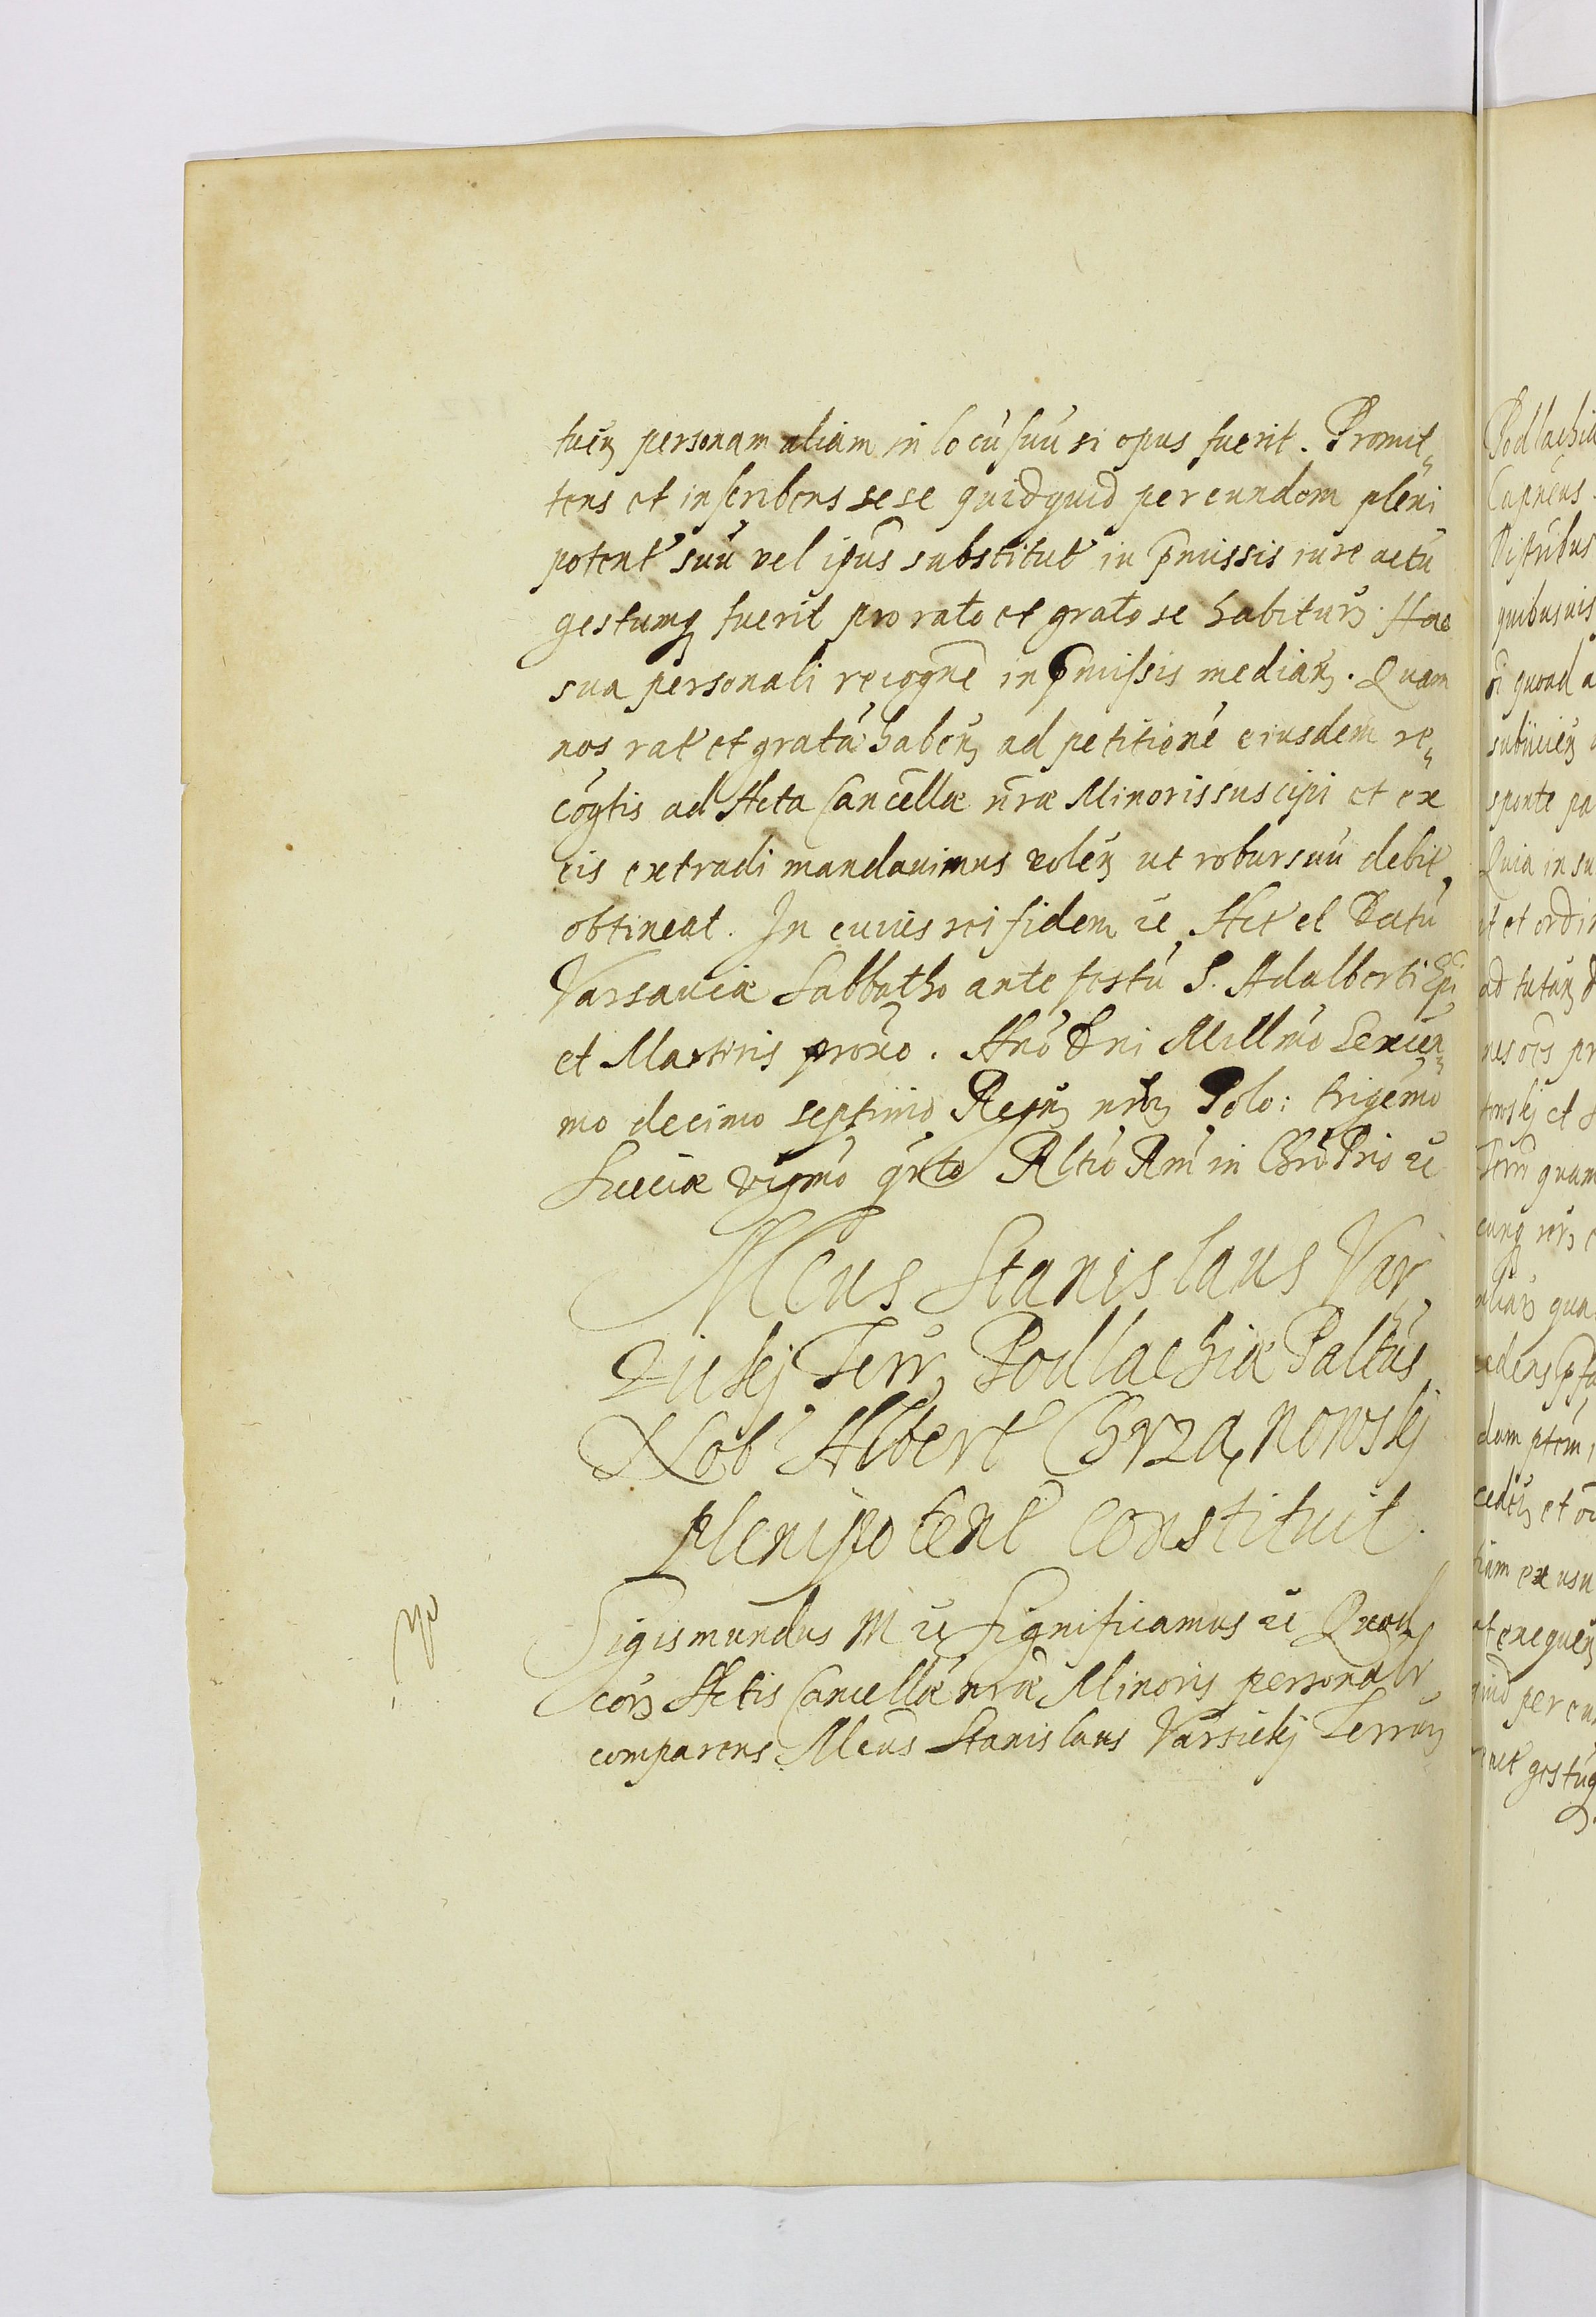 tueñ personam aliam in locū suū si opus fuerit. Promit„
tens et inscribens sese quidquid per eundem pleni
potent suū vel ipūs substitut in p̄missis iure actū
gestumq fuerit pro rato et grato se habiturꝫ. Hac
sua personali recogne͂ in p̄missis median. Quam
nos rat et gratā habeñ ad petitionē eiusdem re„
cōgtis ad Acta Cancellæ nr̄æ Minoris suscipi et ex
eis extradi mandavimus voleñ ut robur suū debit
obtineat. In cuius rei fidem ꝛc Act et Datū
Varsaviæ Sabbatho ante festū S. Adalberti Epi
et Martiris pro͂xo. Año Dni Millmo Sexcen„
mo decimo septimo Regnꝫ nr̄orꝫ Polo: trigēmo
Sueciæ vigmō qrto Rltio Rm̄i in Chro͂ Pris ꝛc
Mcus Stanislaus Var„
sicki Terrꝫ Podlachiæ Paltūs
Nob: Albert Chrzanowskj
plenipotent constituit.
Sigismundus III ꝛc Significamus ꝛc Quod
corꝫ Actis Cancellæ nr̄æ Minoris personalr
comparens Mcus Stanislaus Varsickj Terrarꝫ
Podlachiæ
quibusvis
quoad a
sponte pa
Quia in su
et ordin
towskj et
quam
cunq
aliarꝫ qua
dam
et
tiam ex usu
exequen
quid per eun
gestūq